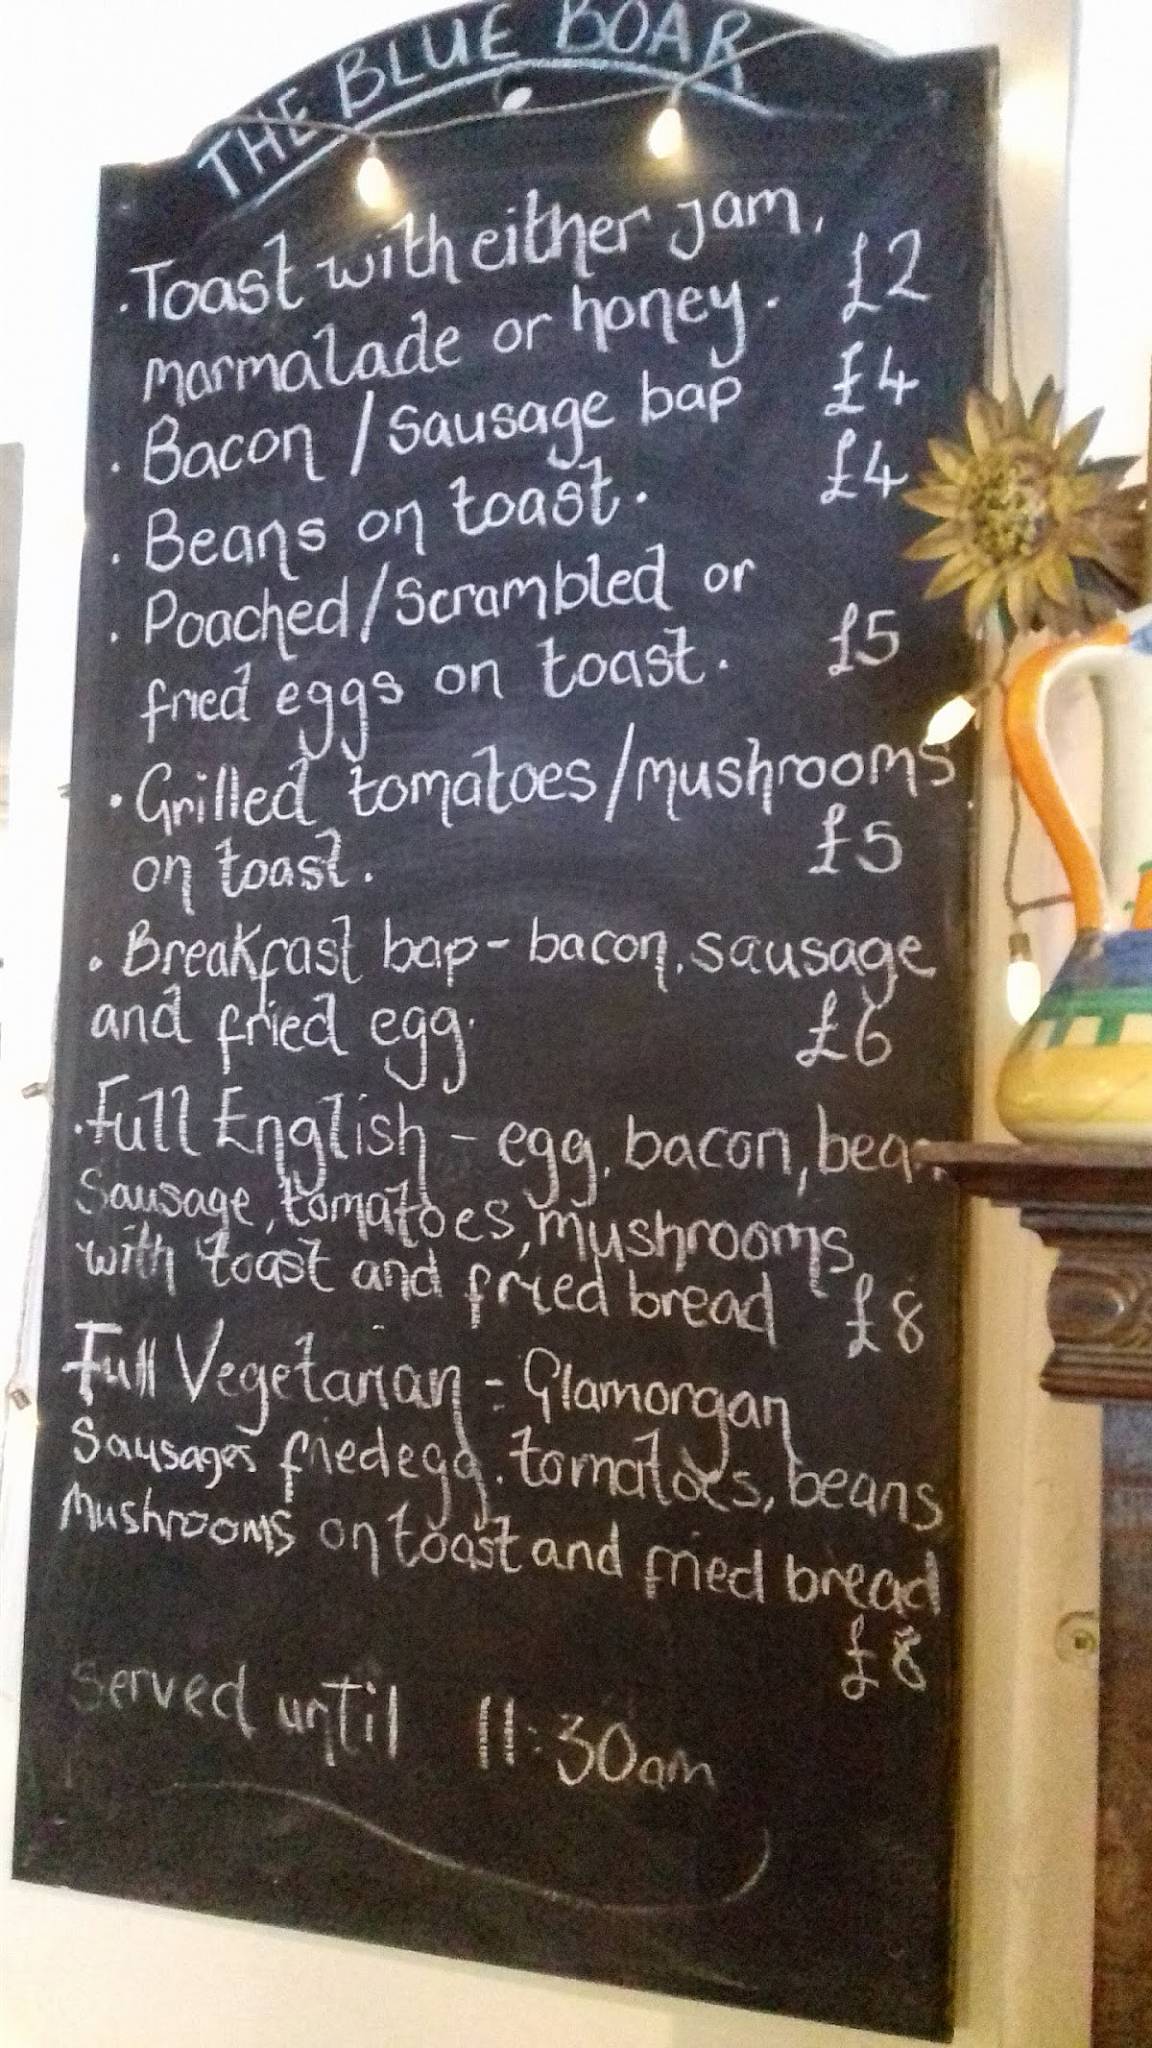 THE BLUE BOAR
. Toast with either jam,
marmalade or honey. £2
. Bacon / Sausage bap £4
. Beans on toast. £4
. Poached/Scrambled or
fried eggs on toast. £5
. Grilled tomatoes/mushrooms
on toast. £5
. Breakfast bap - bacon, sausage
and fried egg. £6
. Full English - egg, bacon, bean
Sausage, tomatoes, mushrooms
with toast and fried bread £8
Full Vegetarian - Glamorgan
Sausages fried egg, tomatoes, beans
Mushrooms on toast and fried bread
£8
Served until 11:30am